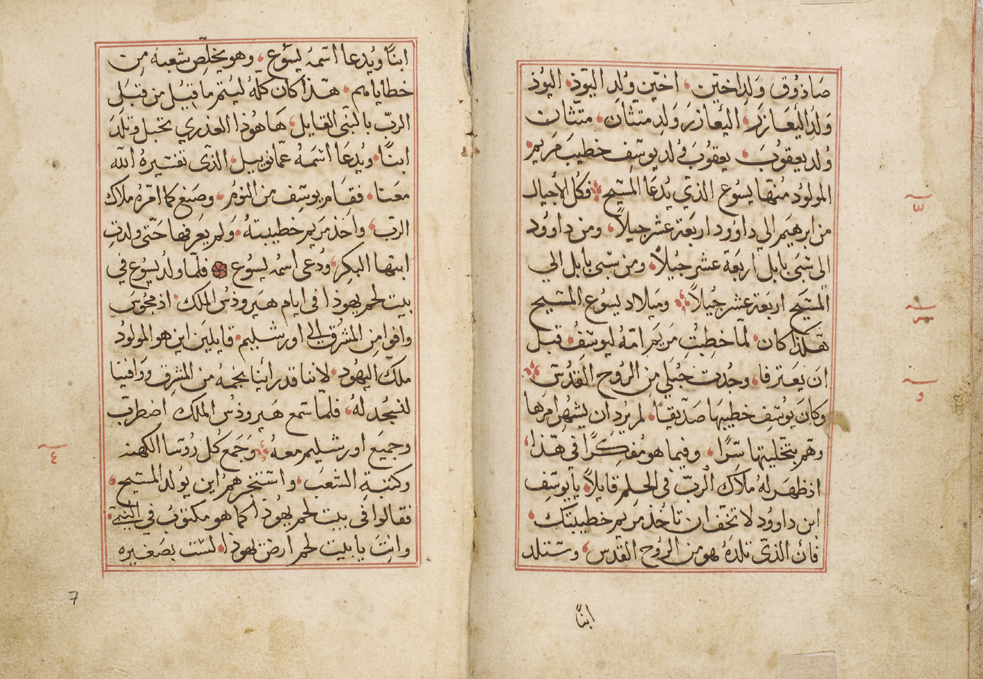 صادوق ولد اخين، اخين ولد اليوذ، اليوذ
ولد اليعازر، اليعازر ولد متثان، متثان
ولد يعقوب، يعقوب ولد يوسف خطيب مريم
المولود منها يسوع الذي يدعا المسيح فكل الاجيال
من ابرهيم الي داوود اربعة عشر جيلاً، ومن داوود
الى سبى بابل اربعة عشر جيلاً، ومن سبى بابل الى
المسيح اربعة عشر جيلاً وميلاد يسوع المسيح
هكذا كان لما خطبت مريم امه ليوسف قبل
ان يعترفا وجدت حبلى من الروح القدس
وكان يوسف خطيبها صديقاً، لم يرد ان يشهر امرها
وهم بتخليتها سراً، وفيما هو مفكراً في هذا
اذ ظهر له ملاك الرب في الحلم قايلاً، يا يوسف
ابن داوود لا تخف ان تاخذ مريم خطيبتك
فان الذي تلده هو من الروح القدس، وستلد
ابنًا
٣
و
ابنًا ويدعا اسمه يسوع، وهو يخلص شعبه من
خطاياهم، هذا كان كله ليتم ما قيل من قبل
الرب بالنبى القايل، ها هوذا العذري تحبل وتلد
ابنًا، ويدعا اسمه عمانوييل، الذي تفسيره الله
معنا، فقام يوسف من النوم، وصنع كما امره ملاك
الرب، واخذ مريم خطيبته، ولم يعرفها حتى ولدت
ابنها البكر، ودعى اسمه يسوع فلما ولد يسوع في
بيت لحم يهوذا في ايام هيروذس الملك، اذ مجوس
وافوا من المشرق الي اورشليم، قايلين اين هو المولود
ملك اليهود، لاننا قد راينا نجمه من المشرق ووافينا
لنسجد له، فلما سمع هيروذس الملك اضطرب
وجميع اورشليم معه، وجمع كل روسا الكهنه
وكتبة الشعب، واستخبرهم اين يولد المسيح،
فقالوا في بيت لحم يهوذا كما هو مكتوب في النبي،
وانت يا بيت لحم ارض يهوذا، لست بصغيره
٤
7